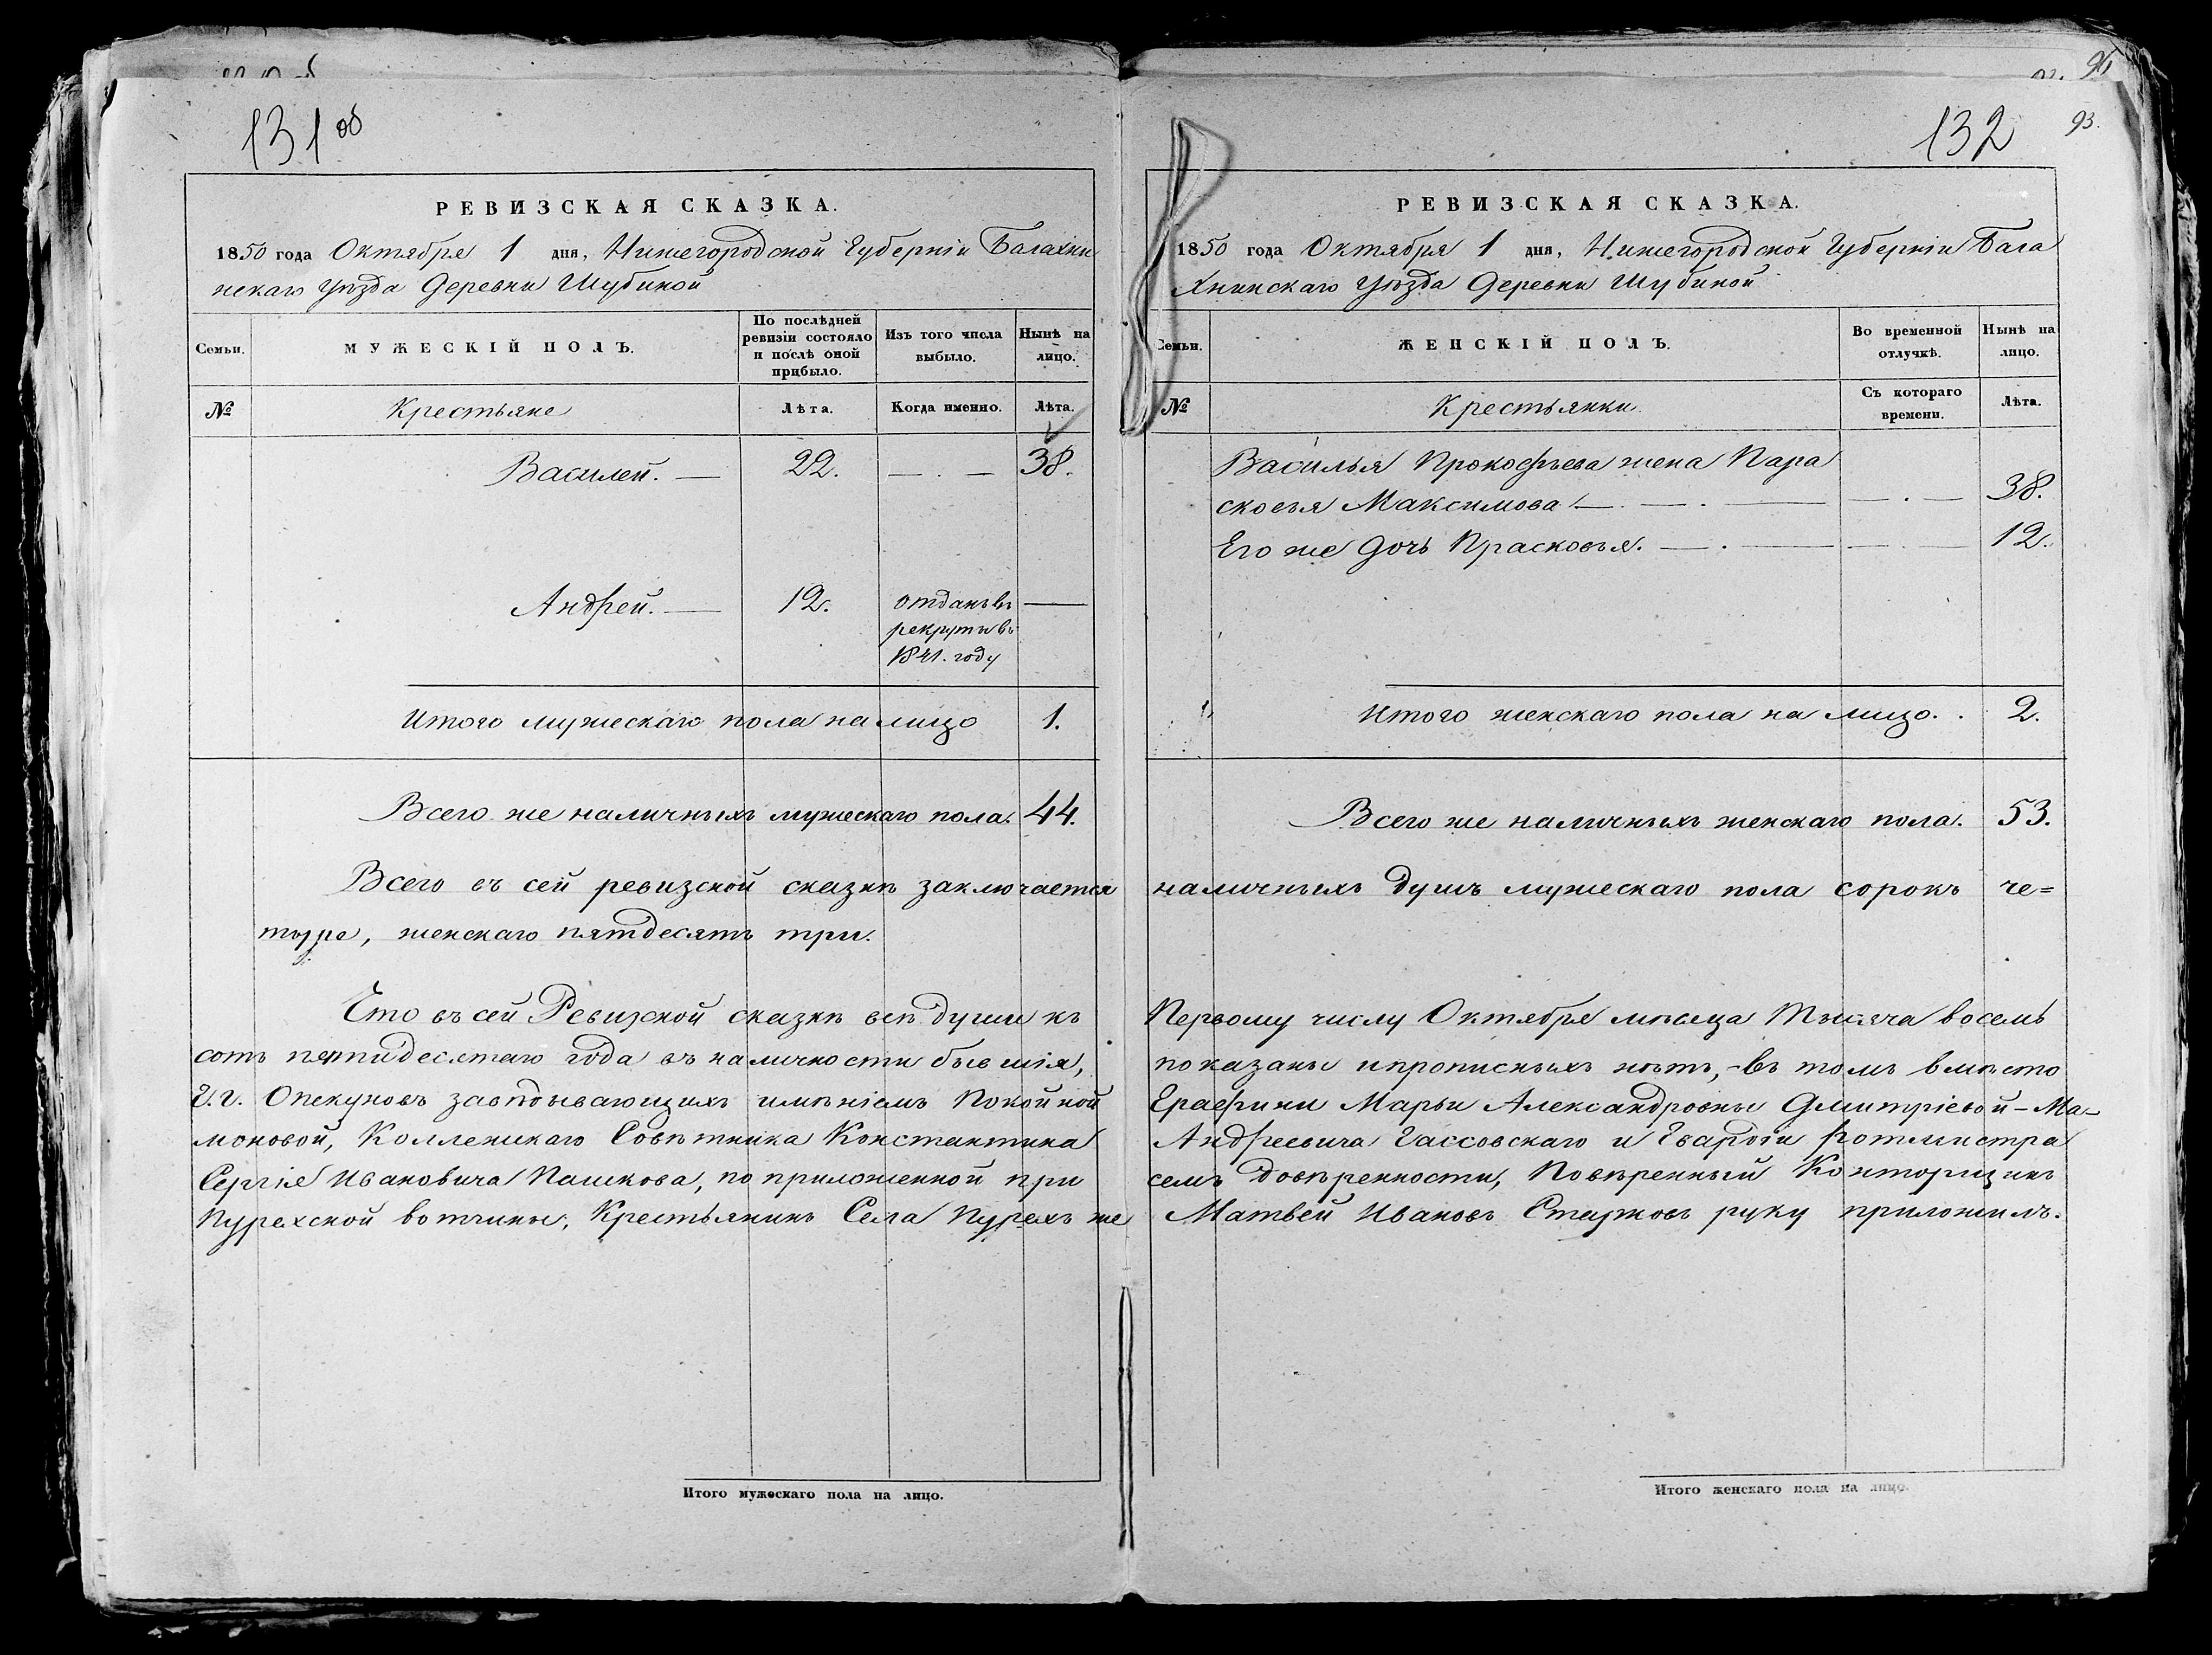 131 об
РЕВИЗСКАЯ СКАЗКА.
1850 года Октября 1 дня, Нижегородской Губерніи Балахни
нскаго уѣзда Деревни Шубиной
Семьи.
МУЖЕСКІЙ ПОЛЪ.
По послѣдней
ревизіи состояло
и послѣ оной
прибыло.
Изъ того числа
выбыло.
Нынѣ на
лицо.
№
Крестьяне
Лѣта.
Когда именно.
Лѣта.
Василей. — 22. — . — 38.
Андрей. — 12. отданъ въ —
рекруты въ
1841. году
Итого мужескаго пола на лицо 1.
Всего же наличныхъ мужескаго пола. 44.
Всего въ сей ревизской сказкѣ заключается
тыре, женскаго пятдесятъ три.
Что въ сей Ревизской сказкѣ всѣ души къ
сотъ пятидесятаго года въ наличности бывшія,
Г.г. Опекуновъ завѣдывающихъ имѣніемъ Покойной
моновой, Коллежскаго Совѣтника Константина
Сергія Ивановича Пашкова, по приложенной при
Пурехской вотчины, Крестьянинъ Села Пурехъ же
Итого мужескаго пола на лицо.
96
132 93.
РЕВИЗСКАЯ СКАЗКА.
1850 года Октября 1 дня, Нижегородской Губерніи Бала
хнинскаго уѣзда Деревни Шубиной
Семьи.
ЖЕНСКІЙ ПОЛЪ.
Во временной
отлучкѣ.
Нынѣ на
лицо.
№
Крестьянки
Съ котораго
времени.
Лѣта.
Василья Прокофьева жена Пара
сковья Максимова — . — . — — . — 38.
Его же дочь Прасковья. — . — — — 12.
Итого женскаго пола на лицо. . 2.
Всего же наличныхъ женскаго пола. 53.
наличныхъ душъ мужескаго пола сорокъ че=
Первому числу Октября мѣсяца Тысяча восемь
показаны и прописныхъ нѣтъ, - въ томъ вмѣсто
Графини Марьи Александровны Дмитріевой - Ма-
Андреевича Гассовскаго и Гвардіи ротмистра
семъ довѣренности, Повѣренный Конторщикъ
Матвей Ивановъ руку приложилъ.
Итого женскаго пола на лицо.